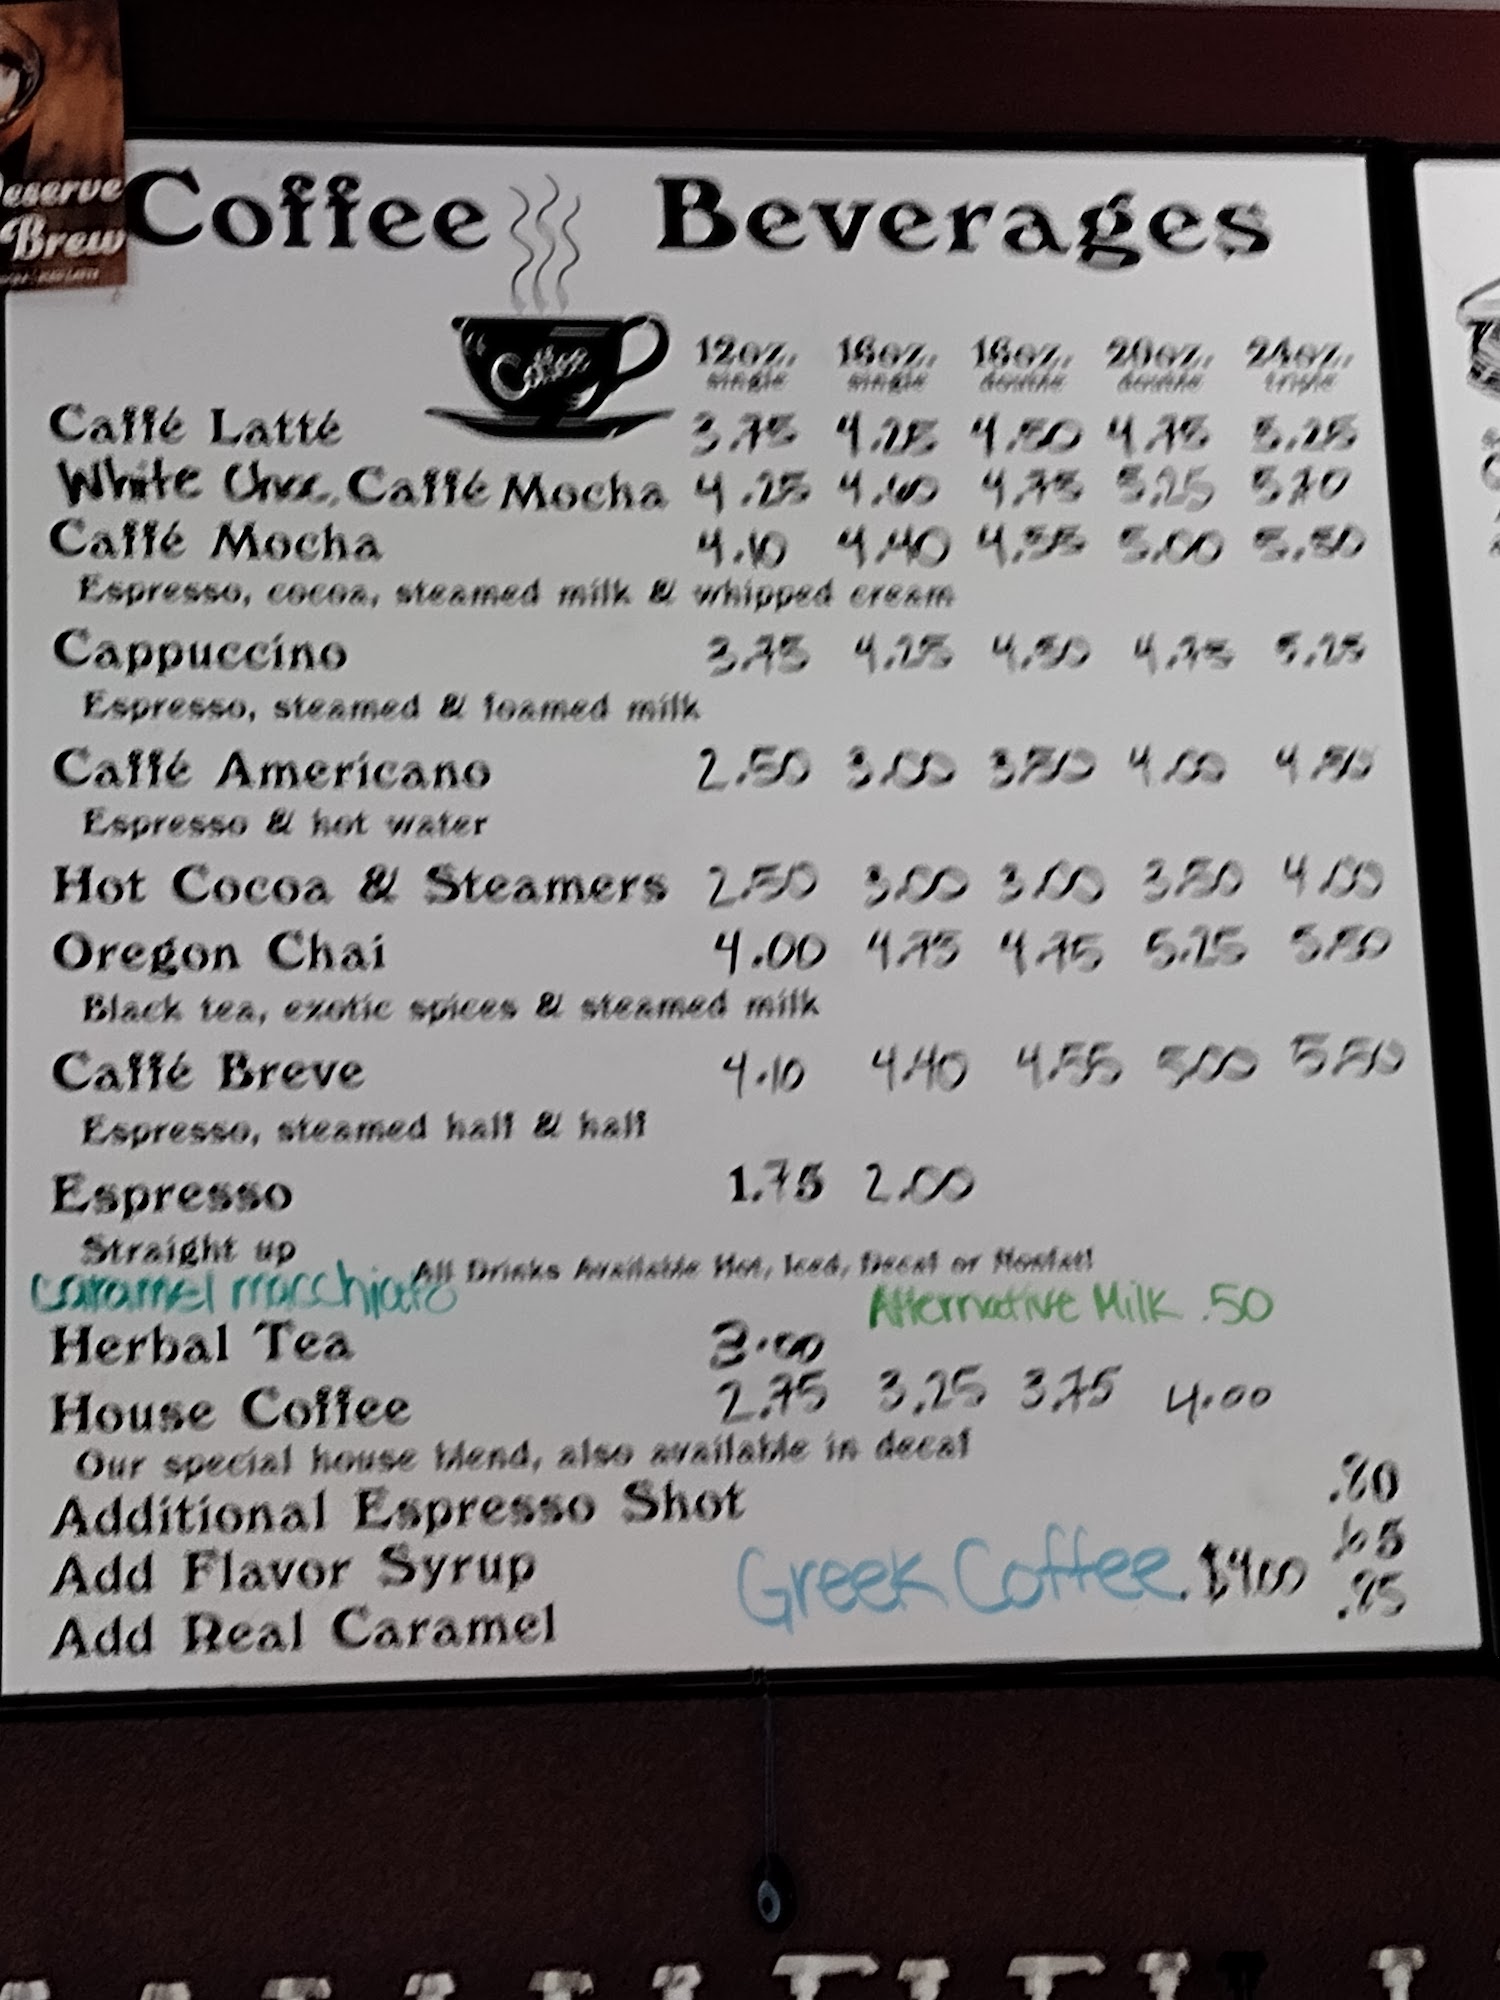 eserve
Brew
Coffee Beverages
Coffee
12oz. 16oz. 16oz. 20oz. 24oz.
single single double double triple
Caffé Latté 3.75 4.25 4.50 4.75 5.25
White Choc. Caffé Mocha 4.25 4.60 4.75 5.25 5.70
Caffé Mocha 4.10 4.40 4.55 5.00 5.50
Espresso, cocoa, steamed milk & whipped cream
Cappuccino 3.75 4.25 4.50 4.75 5.25
Espresso, steamed & foamed milk
Caffé Americano 2.50 3.00 3.50 4.00 4.50
Espresso & hot water
Hot Cocoa & Steamers 2.50 3.00 3.00 3.50 4.00
Oregon Chai 4.00 4.75 4.75 5.25 5.50
Black tea, exotic spices & steamed milk
Caffé Breve 4.10 4.40 4.55 5.00 5.50
Espresso, steamed half & half
Espresso 1.75 2.00
Straight up
All Drinks Available Hot, Iced, Decaf or Nonfat!
Caramel macchiato
Alternative Milk .50
Herbal Tea 3.00
House Coffee 2.75 3.25 3.75 4.00
Our special house blend, also available in decaf
Additional Espresso Shot
Add Flavor Syrup .65
Greek Coffee. $4.00
Add Real Caramel